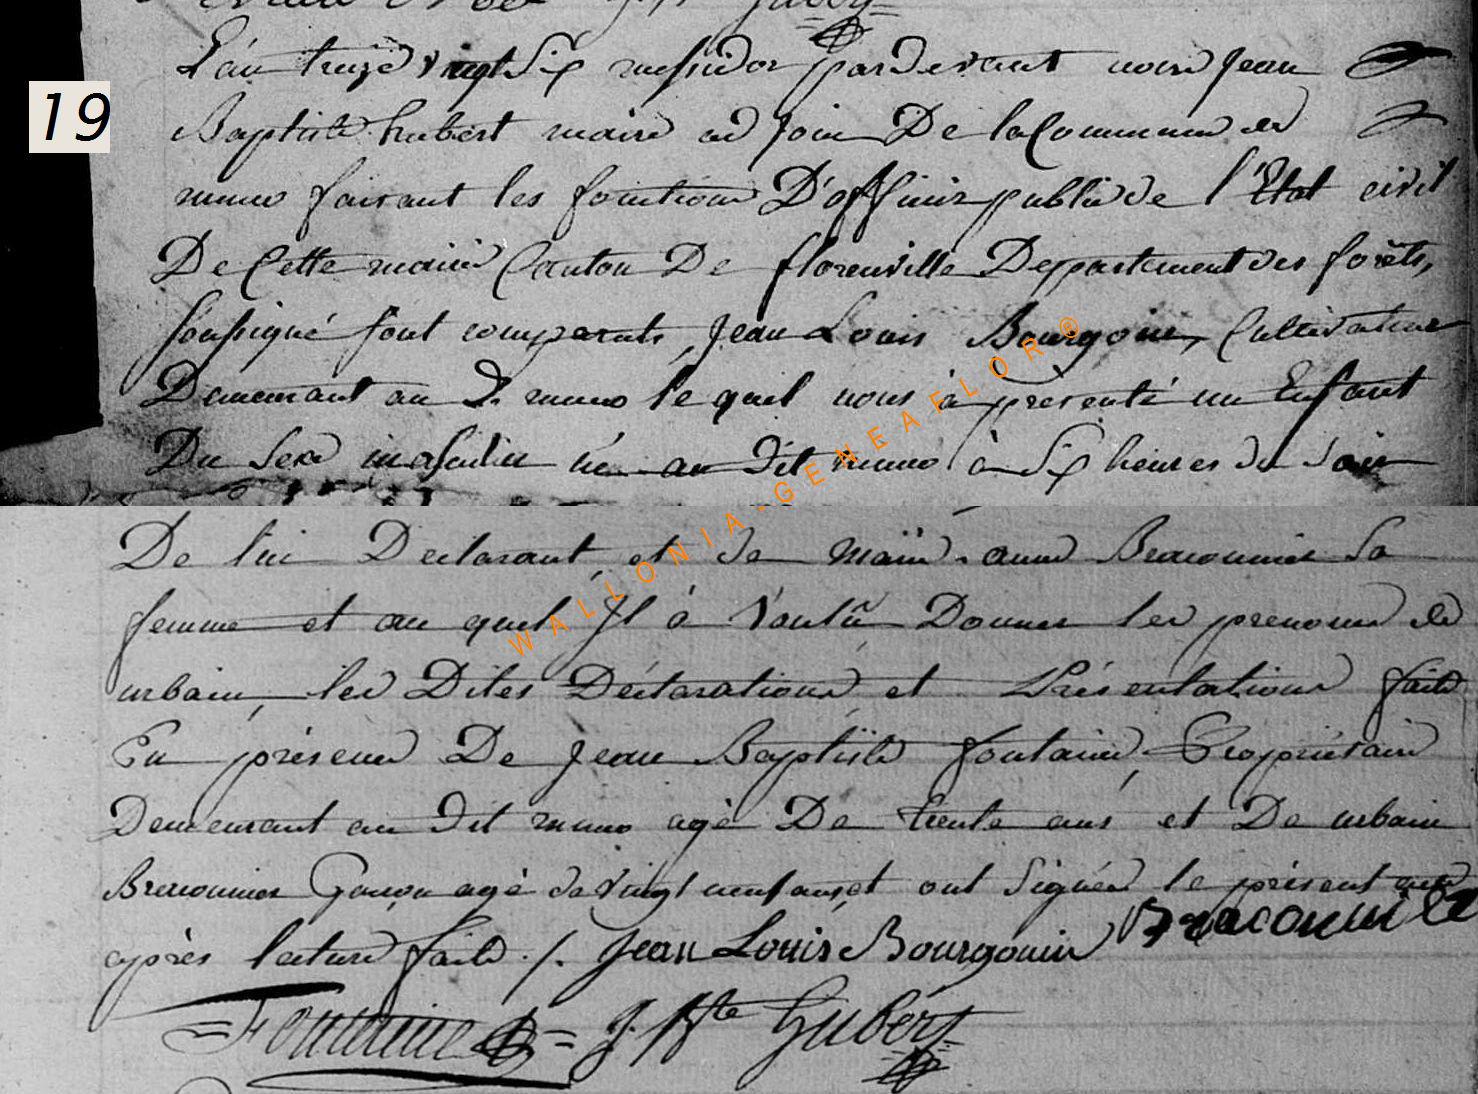 19
L'an treize vingt Six messidor par devant nous Jean
Baptiste hubert maire ad join De la Commune de
muno faisant les fonctions D'officier public de l'Etat civil
De Cette mairie Canton De florenville Departement des forêts,
soussigné sont comparuts, Jean Louis Bourgoin, Cultivateur
Demeurant au D. muno le quel nous à presenté un Enfant
Du Sexe masculin né au dit muno à Six heures du Soir
De lui Declarant, et de marie anne Braconnier Sa
femme et au quel Il à Voulu Donner les prenoms de
urbain, les Dites Déclarations et Présentations faite
En présence De Jean Baptiste fontaine, Propriétaire
Demeurant au Dit muno agé De trente ans et De urbain
Braconnier Garçon agé de vingt neuf ans, et ont Signés le présent acte
après lecture faite ./. Jean Louis Bourgouin Braconnier
Fontaine J. Bte Hubert
WALLONIA-GENEAFLOR®